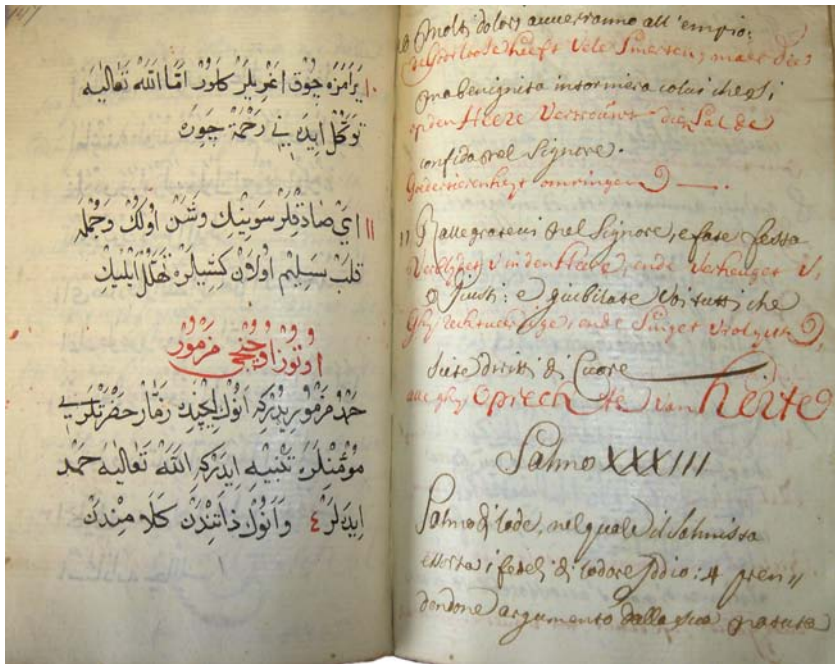 ١٠ يرامزه چوق اغريلر كلور امّا اللّه تعاليه
توكّل ايدني رحمة چوره
١١ اي صادقلر سوينيك وشن اولك وجمله
قلب سليم اولان كشيلر تهلّل ايلنيك
اوتوز اوچنجی مزمور
حمد مزموريدركه انوك ايچنده زمّار حضرتلری
مؤمنلره تنبيه ايدركه اللّه تعاليه حمد
ايدلر ٤ وانوك ذاتندن كلامندن
10 Molti dolori auuerranno all'empio:
De Godtloose heeft Vele Smerten; maer die
ma benignita intorniera colui che si
op den Heere Vertrouwt dien Sal de
confida nel Signore.
Goedertierenheyt omringen
11 Rallegrateui nel Signore, e fate festa
Verblydet V in den Heere, ende Verheuget V,
o Giusti: e giubilate Voi tutti che
Ghy rechtueerdige, ende Singet Vrolyck
siete diritti di Cuore
alle ghy Oprechte van herte
Salmo XXXIII
Salmo di lode, nel quale il Salmista
esorta i fedeli di lodare Iddio: 4 pren//
dendone argumento dalla sua natura